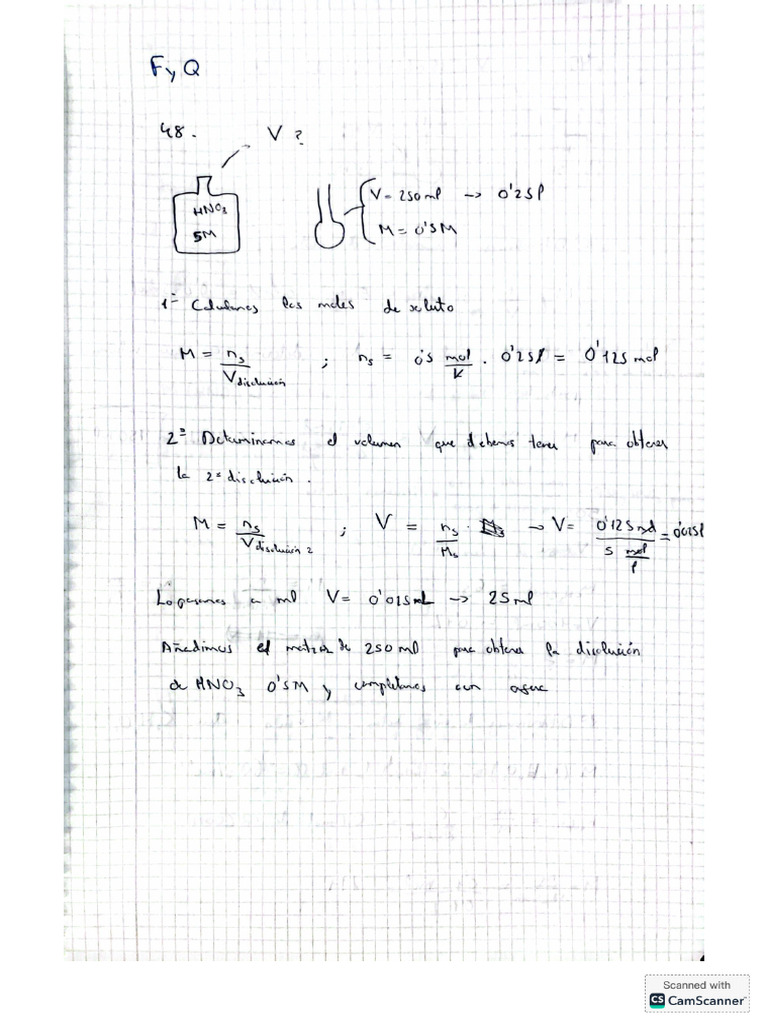 F y Q
48. V ?
HNO3
5M
V = 250 ml → 0'25 l
M = 0'5 M
1º Calculamos los moles de soluto
M = ns / Vdisolución ; ns = 0'5 mol/l · 0'25 l = 0'125 mol
2º Determinamos el volumen que debemos tener para obtener
la 2ª disolución.
M = ns / Vdisolución 2 ; V = ns / Ms → V = 0'125 mol / 5 mol/l = 0'025 l
Lo pasamos a ml V = 0'025 mL → 25 ml
Añadimos el matraz de 250 ml para obtener la disolución
de HNO3 0'5M y completamos con agua
Scanned with
CS CamScanner